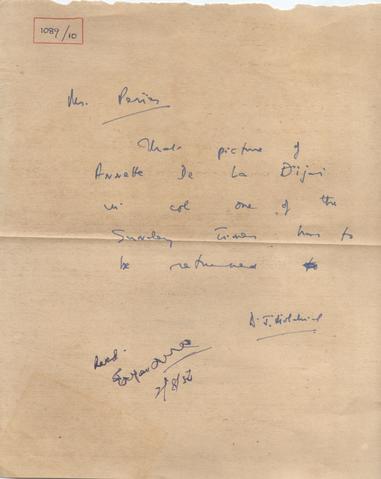 1089/10
Mr. Peries
That picture of
Annette De La Dijai
in col one of the
Sunday Times has to
be returned
D. J.
Recd.
7/8/56